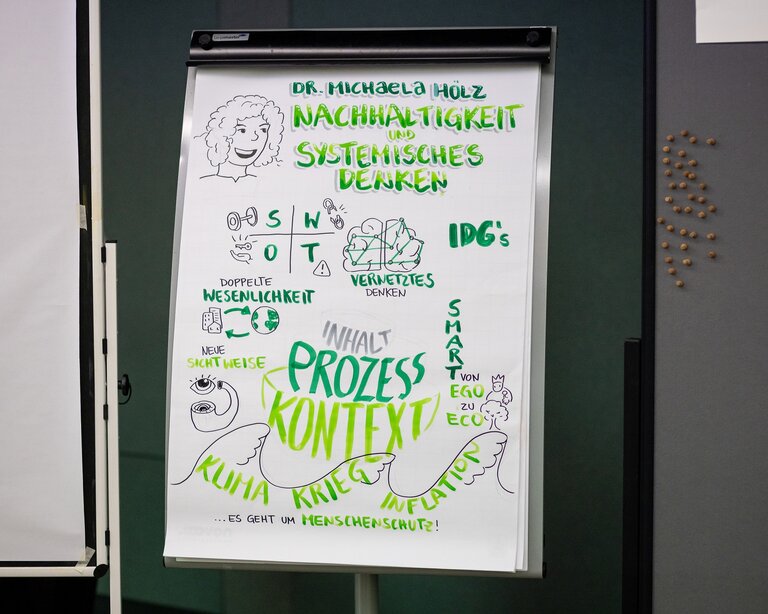 DR. MICHAELA HÖLZ
NACHHALTIGKEIT
UND
SYSTEMISCHES
DENKEN
S W
O T
VERNETZTES
DENKEN
IDG's
DOPPELTE
WESENLICHKEIT
NEUE
SICHTWEISE
INHALT
PROZESS
KONTEXT
SMART
VON
EGO
ZU
ECO
KLIMA KRIEG INFLATION
...ES GEHT UM MENSCHENSCHUTZ!